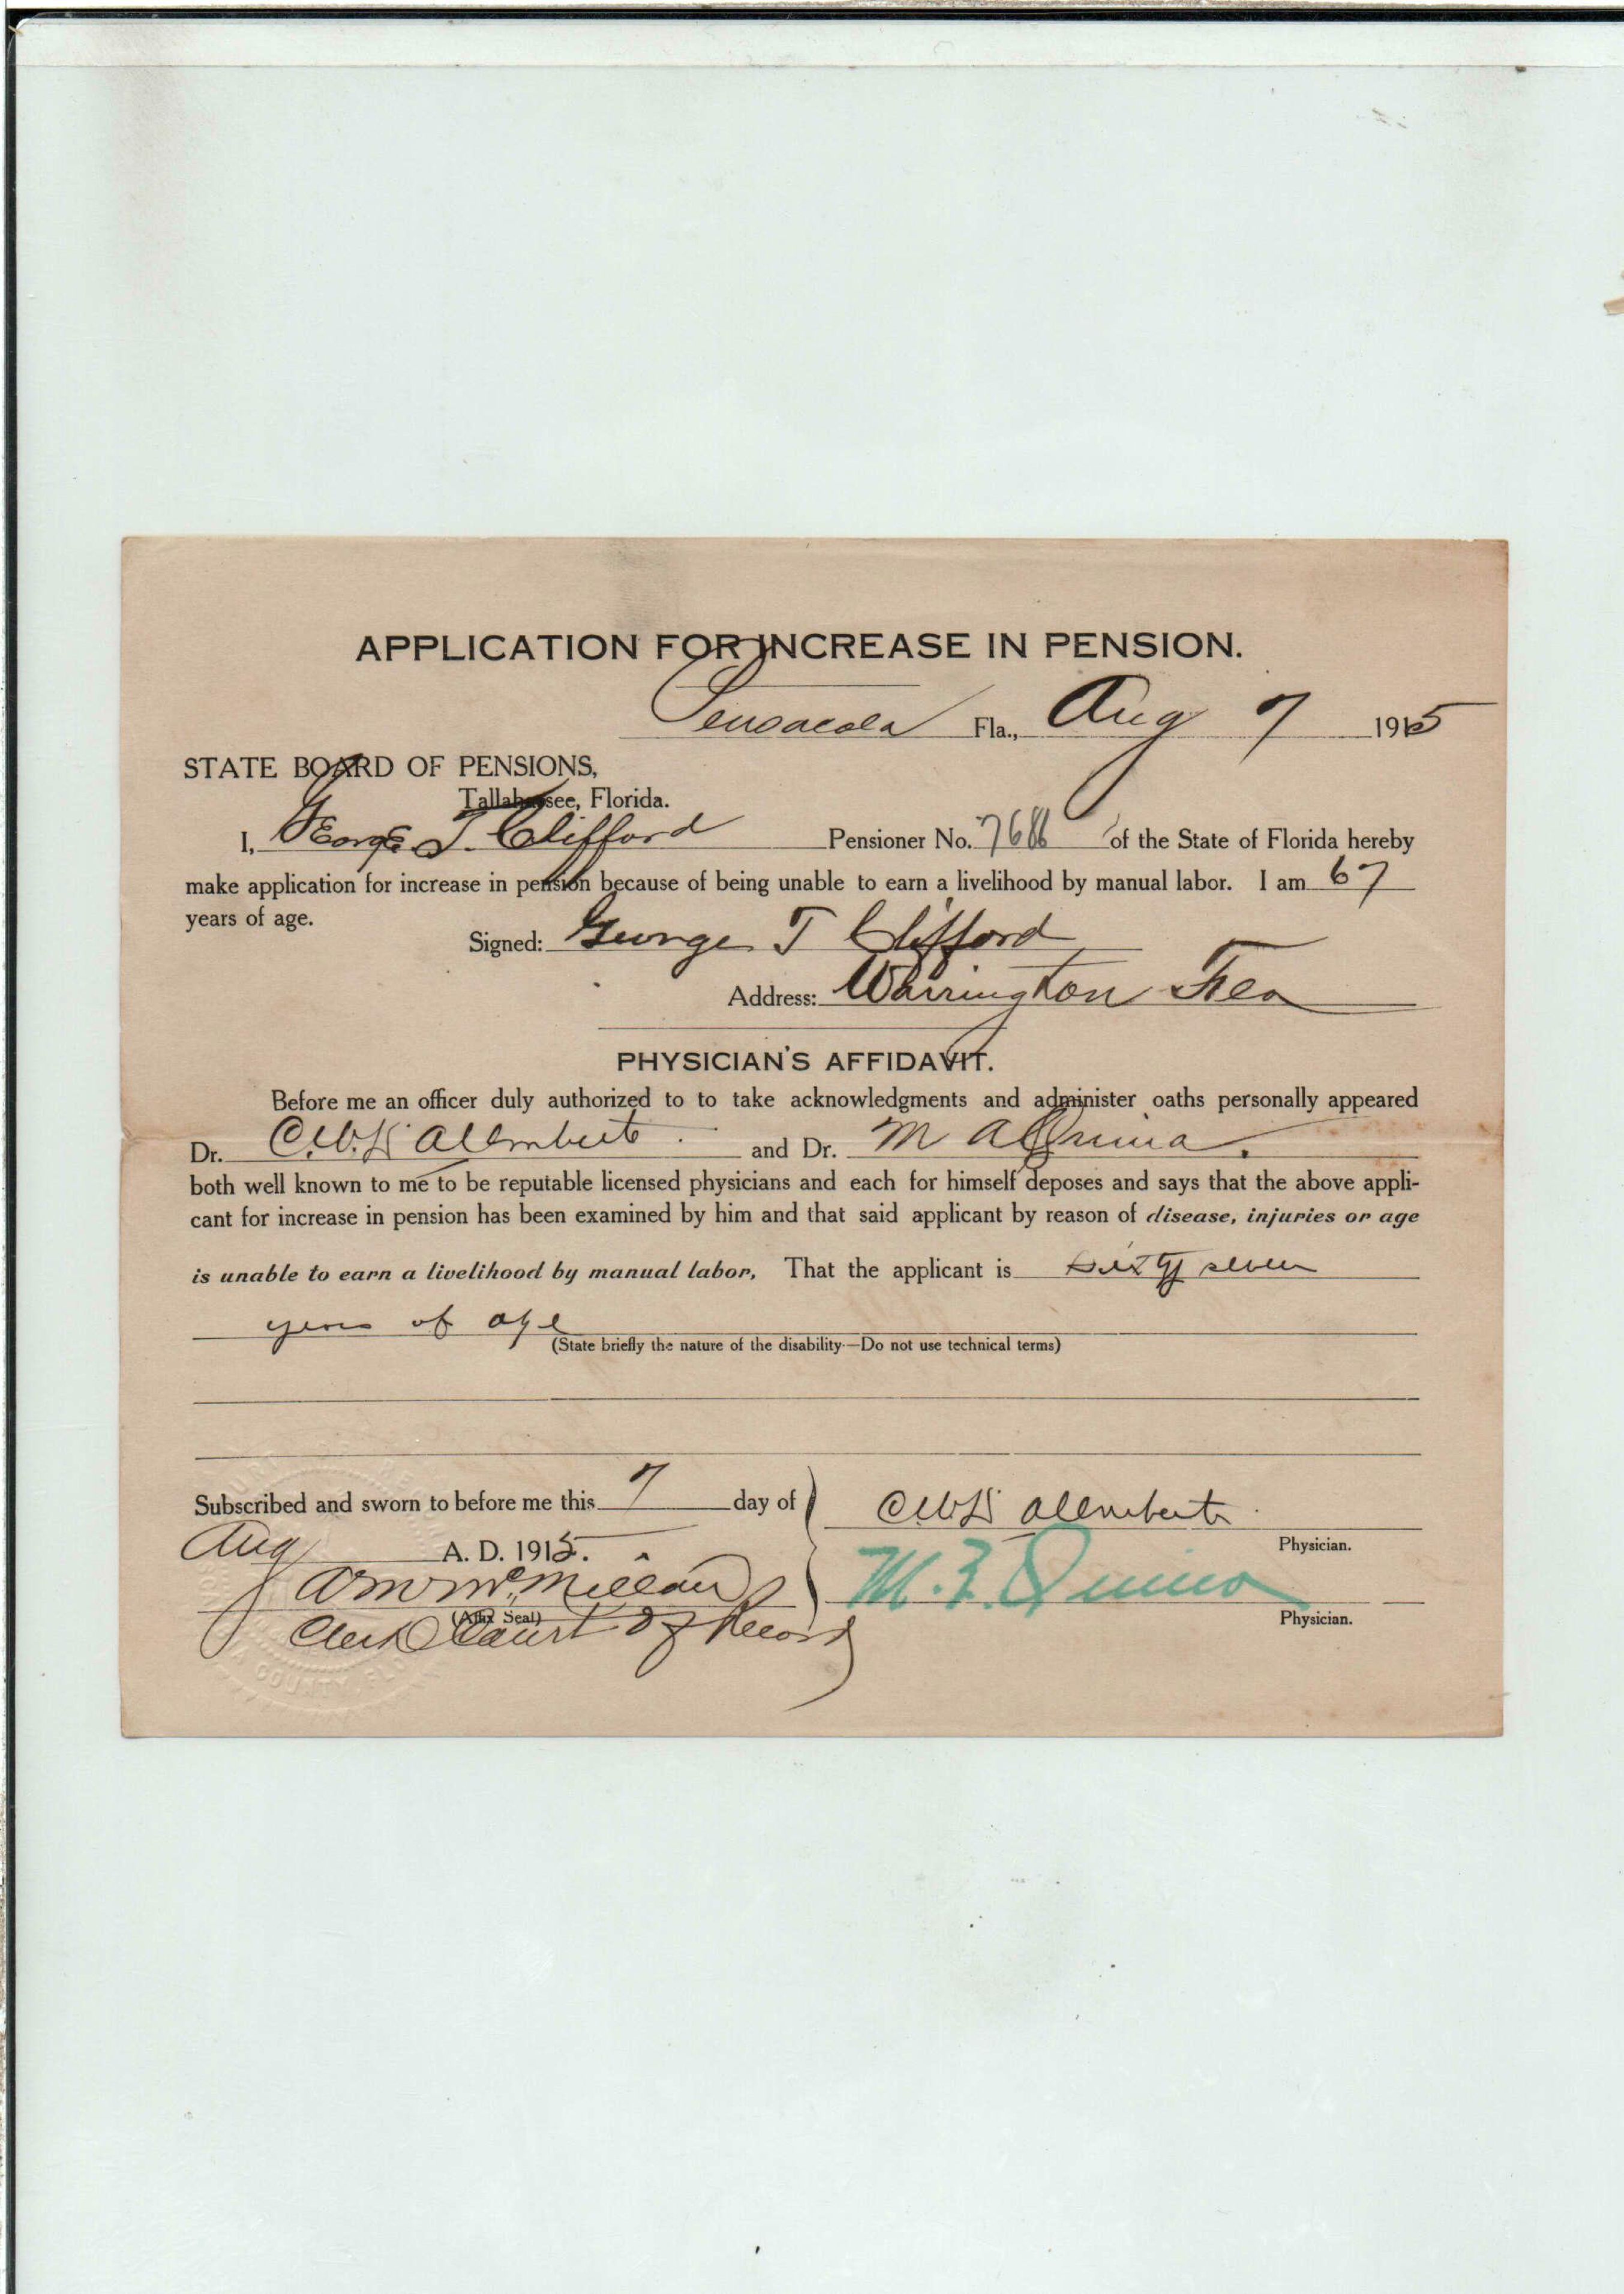 APPLICATION FOR INCREASE IN PENSION.
Pensacola Fla., Aug 7 1915
STATE BOARD OF PENSIONS,
Tallahassee, Florida.
I, George T. Clifford Pensioner No. 7686 of the State of Florida hereby
make application for increase in pension because of being unable to earn a livelihood by manual labor. I am 67
years of age.
Signed: George T Clifford
Address: Warrington Fla
PHYSICIAN'S AFFIDAVIT.
Before me an officer duly authorized to to take acknowledgments and administer oaths personally appeared
Dr. C.W. D'Alemberte and Dr. M A Quina
both well known to me to be reputable licensed physicians and each for himself deposes and says that the above appli-
cant for increase in pension has been examined by him and that said applicant by reason of disease, injuries or age
is unable to earn a livelihood by manual labor, That the applicant is sixty seven
years of age
(State briefly the nature of the disability—Do not use technical terms)
Subscribed and sworn to before me this 7 day of
Aug A. D. 1915.
McMillan
(Affix Seal)
Clerk Court of Record
C W D'Alemberte
Physician.
Quina
Physician.
COUNTY, FL